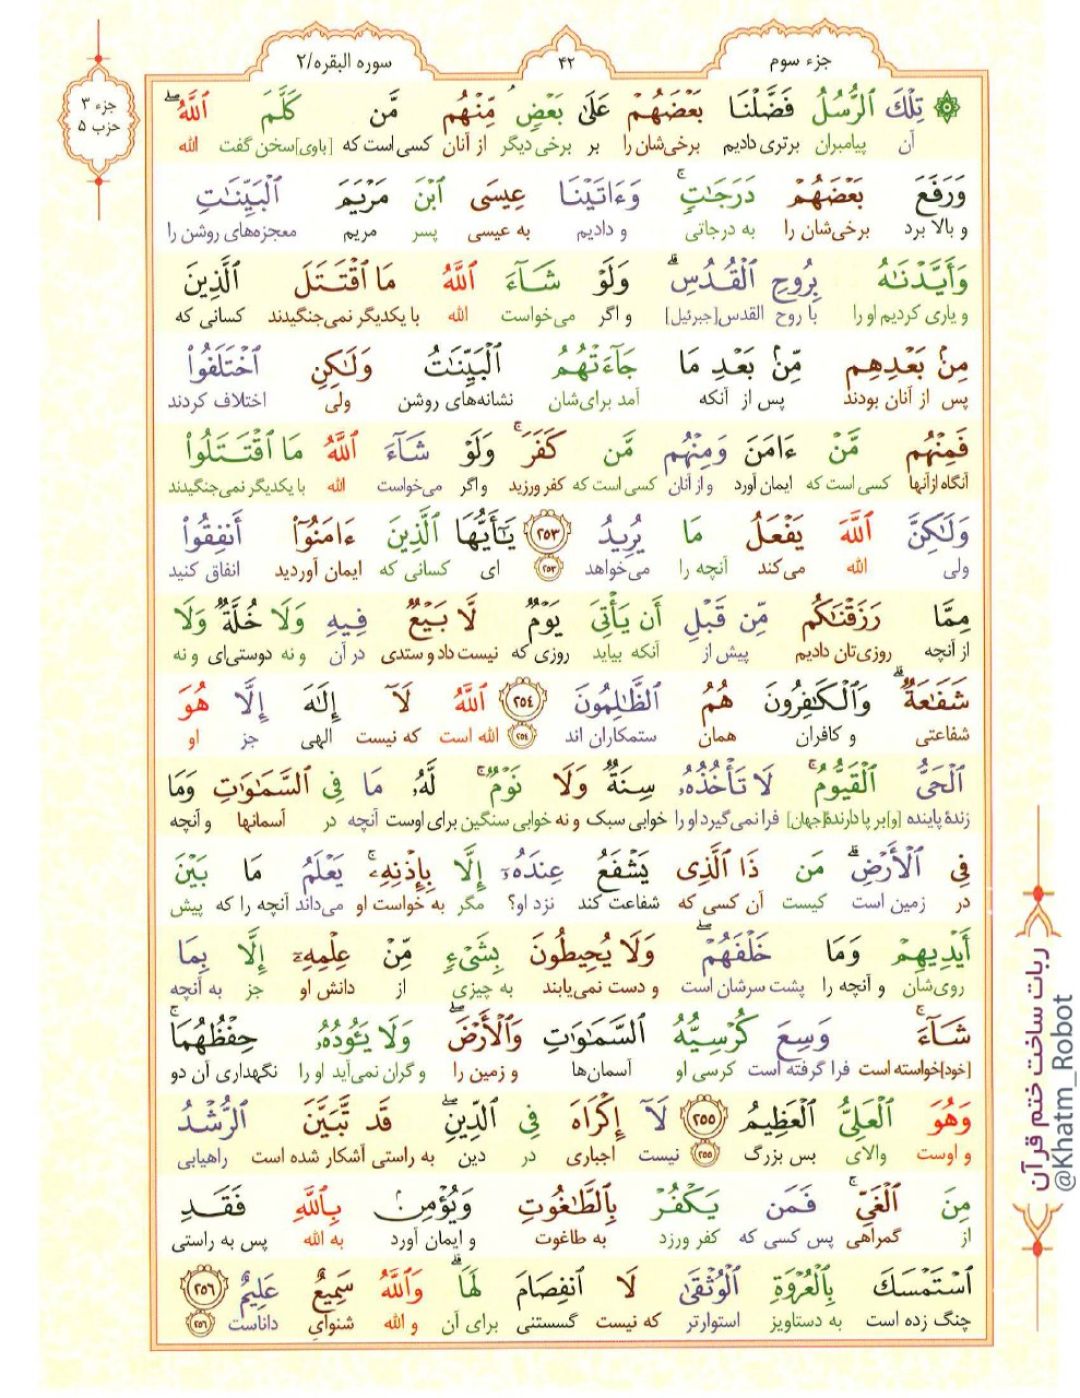 جزء سوم
۴۲
سوره البقره/۲
جزء ۳
حزب ۵
تِلْكَ ٱلرُّسُلُ فَضَّلْنَا بَعْضَهُمْ عَلَىٰ بَعْضٍ مِّنْهُم مَّن كَلَّمَ ٱللَّهُ
آن پیامبران برتری دادیم برخی‌شان را بر برخی دیگر از آنان کسی است که [باوی] سخن گفت الله
وَرَفَعَ بَعْضَهُمْ دَرَجَٰتٍ وَءَاتَيْنَا عِيسَى ٱبْنَ مَرْيَمَ ٱلْبَيِّنَٰتِ
و بالا برد برخی‌شان را به درجاتی و دادیم به عیسی پسر مریم معجزه‌های روشن را
وَأَيَّدْنَٰهُ بِرُوحِ ٱلْقُدُسِ وَلَوْ شَآءَ ٱللَّهُ مَا ٱقْتَتَلَ ٱلَّذِينَ
و یاری کردیم او را با روح القدس[جبرئیل] و اگر می‌خواست الله با یکدیگر نمی‌جنگیدند کسانی که
مِنۢ بَعْدِهِم مِّنۢ بَعْدِ مَا جَآءَتْهُمُ ٱلْبَيِّنَٰتُ وَلَٰكِنِ ٱخْتَلَفُوا۟
پس از آنان بودند پس از آنکه آمد برای‌شان نشانه‌های روشن ولی اختلاف کردند
فَمِنْهُم مَّنْ ءَامَنَ وَمِنْهُم مَّن كَفَرَ وَلَوْ شَآءَ ٱللَّهُ مَا ٱقْتَتَلُوا۟
آنگاه ازآنها کسی است که ایمان آورد و از آنان کسی است که کفر ورزید و اگر می‌خواست الله با یکدیگر نمی‌جنگیدند
وَلَٰكِنَّ ٱللَّهَ يَفْعَلُ مَا يُرِيدُ ٢٥٣ يَٰٓأَيُّهَا ٱلَّذِينَ ءَامَنُوٓا۟ أَنفِقُوا۟
ولی الله می‌کند آنچه را می‌خواهد ۲۵۳ ای کسانی که ایمان آوردید انفاق کنید
مِمَّا رَزَقْنَٰكُم مِّن قَبْلِ أَن يَأْتِىَ يَوْمٌ لَّا بَيْعٌ فِيهِ وَلَا خُلَّةٌ وَلَا
از آنچه روزی‌تان دادیم پیش از آنکه بیاید روزی که نیست داد و ستدی در آن و نه دوستی‌ای و نه
شَفَٰعَةٌ وَٱلْكَٰفِرُونَ هُمُ ٱلظَّٰلِمُونَ ٢٥٤ ٱللَّهُ لَآ إِلَٰهَ إِلَّا هُوَ
شفاعتی و کافران همان ستمکاران اند ۲۵۴ الله است که نیست الهی جز او
ٱلْحَىُّ ٱلْقَيُّومُ لَا تَأْخُذُهُۥ سِنَةٌ وَلَا نَوْمٌ لَّهُۥ مَا فِى ٱلسَّمَٰوَٰتِ وَمَا
زندهٔ پاینده [و]بر پا دارندهٔ[جهان] فرا نمی‌گیرد او را خوابی سبک و نه خوابی سنگین برای اوست آنچه در آسمانها و آنچه
فِى ٱلْأَرْضِ مَن ذَا ٱلَّذِى يَشْفَعُ عِندَهُۥٓ إِلَّا بِإِذْنِهِۦ يَعْلَمُ مَا بَيْنَ
در زمین است کیست آن کسی که شفاعت کند نزد او؟ مگر به خواست او می‌داند آنچه را که پیش
أَيْدِيهِمْ وَمَا خَلْفَهُمْ وَلَا يُحِيطُونَ بِشَىْءٍ مِّنْ عِلْمِهِۦٓ إِلَّا بِمَا
روی‌شان و آنچه را پشت سرشان است و دست نمی‌یابند به چیزی از دانش او جز به آنچه
شَآءَ وَسِعَ كُرْسِيُّهُ ٱلسَّمَٰوَٰتِ وَٱلْأَرْضَ وَلَا يَـُٔودُهُۥ حِفْظُهُمَا
[خود]خواسته است فرا گرفته است کرسی او آسمان‌ها و زمین را و گران نمی‌آید او را نگهداری آن دو
وَهُوَ ٱلْعَلِىُّ ٱلْعَظِيمُ ٢٥٥ لَآ إِكْرَاهَ فِى ٱلدِّينِ قَد تَّبَيَّنَ ٱلرُّشْدُ
و اوست والای بس بزرگ ۲۵۵ نیست اجباری در دین به راستی آشکار شده است راهیابی
مِنَ ٱلْغَىِّ فَمَن يَكْفُرْ بِٱلطَّٰغُوتِ وَيُؤْمِنۢ بِٱللَّهِ فَقَدِ
از گمراهی پس کسی که کفر ورزد به طاغوت و ایمان آورد به الله پس به راستی
ٱسْتَمْسَكَ بِٱلْعُرْوَةِ ٱلْوُثْقَىٰ لَا ٱنفِصَامَ لَهَا وَٱللَّهُ سَمِيعٌ عَلِيمٌ ٢٥٦
چنگ زده است به دستاویز استوارتر که نیست گسستنی برای آن و الله شنوای داناست ۲۵۶
ربات ساخت ختم قرآن
@Khatm_Robot